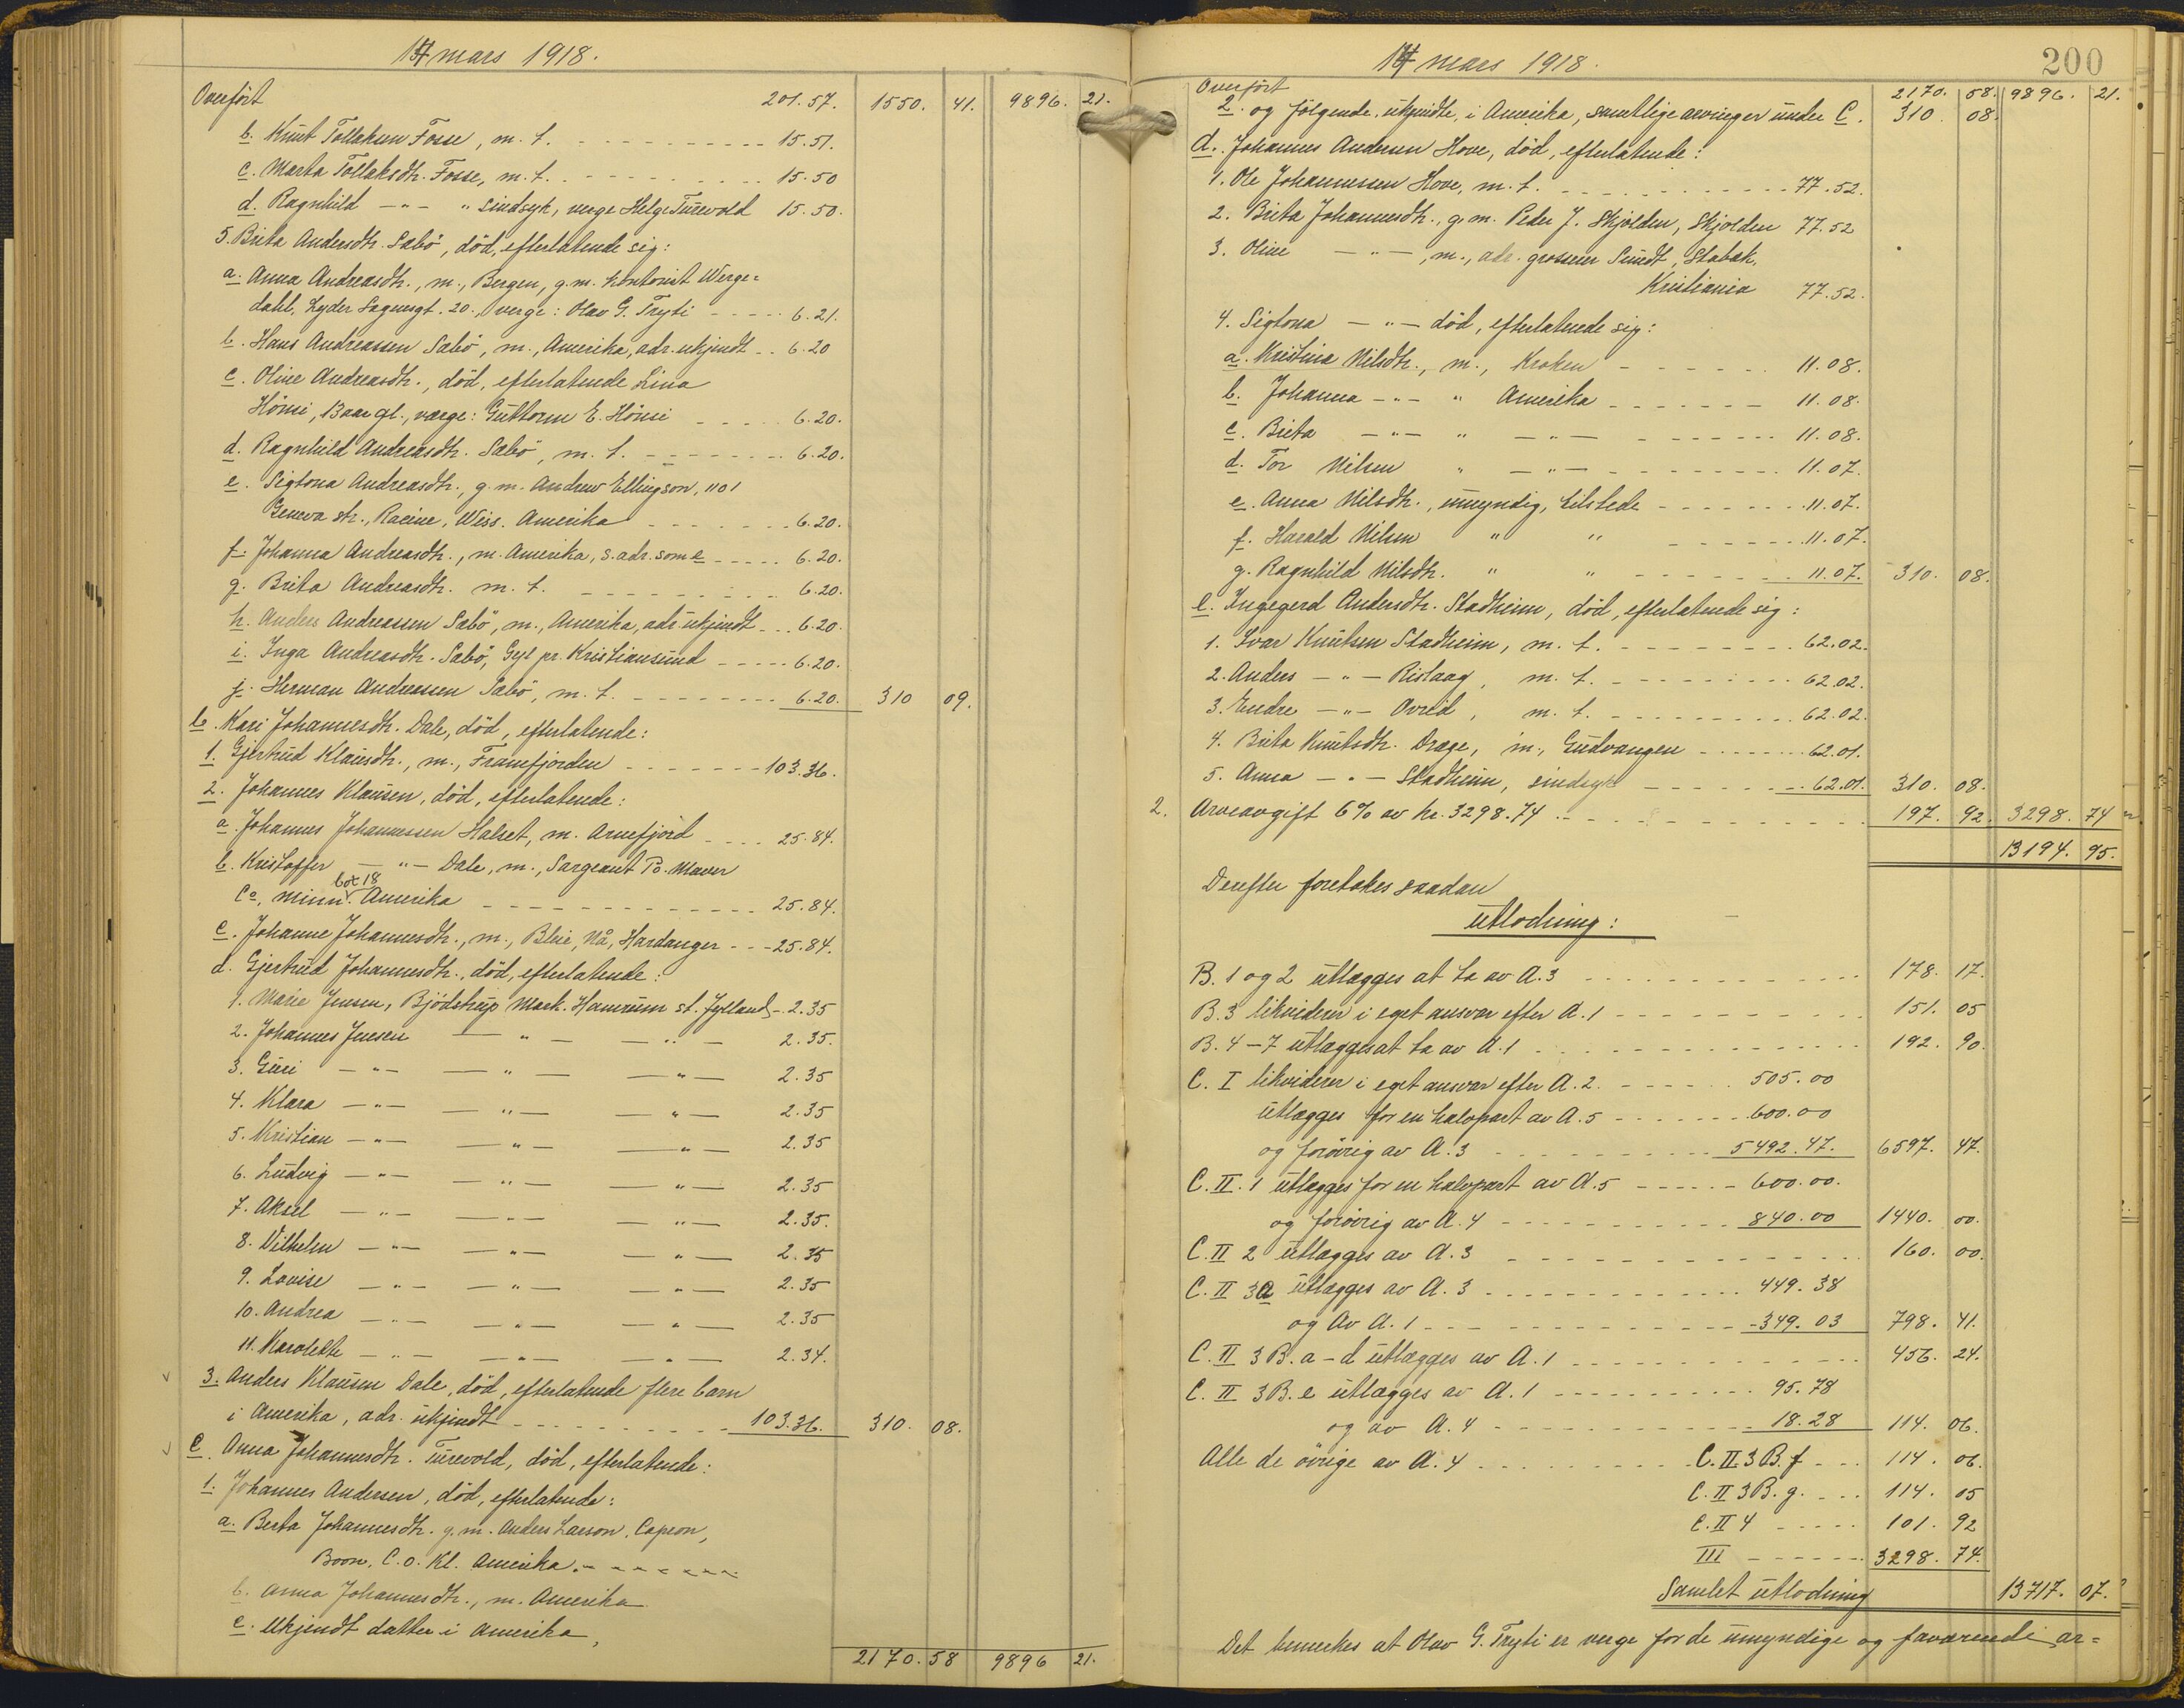 14 mars 1918.
Overført 201.57. 1550. 41. 9896. 21.
b. Knut Tollaksen Fosse, m. t. 15.51.
c. Marta Tollaksdtr. Fosse, m. t. 15.50
d. Ragnhild —"— " sindsyk, verge Helge Turevold 15.50.
5. Brita Andersdtr. Sabö, död, efterlatende sig:
a. Anna Andreasdtr., m., Bergen, g.m. kontorist Werge=
dahl, Lyder Sagensgt. 20., verge: Olav G. Tryti 6.21.
b. Hans Andreassen Sabö, m., Amerika, adr. ukjendt 6.20
c. Oline Andreasdtr., död, efterlatende Lina
Hönsi, 13 aar gl., værge: Guttorm E. Hönsi 6.20.
d. Ragnhild Andreasdtr. Sabö, m. t. 6.20.
e. Sigtona Andreasdtr., g.m. Andrew Ellingson, 1101
Geneva str., Racine, Wiss. Amerika 6.20.
f. Johanna Andreasdtr., m. Amerika, s. adr. som e 6.20.
g. Brita Andreasdtr. m. t. 6.20.
h. Anders Andreassen Sabö, m., Amerika, adr. ukjendt 6.20.
i. Inga Andreasdtr. Sabö, Gyl pr. Kristiansund 6.20.
j. Herman Andreassen Sabö, m. t. 6.20. 310 09.
b. Kari Johannesdtr. Dale, död, efterlatende:
1. Gjertrud Klausdtr., m., Framfjorden 103.36.
2. Johannes Klausen, död, efterlatende:
a. Johannes Johannessen Halset, m. Arnefjord 25.84.
b. Kristoffer —"— Dale, m., Sargeant Po. Maver
Co, Minn. box 18 Amerika 25.84.
c. Johanne Johannesdtr., m., Bleie, Nå, Hardanger 25.84.
d. Gjertrud Johannesdtr., död, efterlatende:
1. Marie Jensen, Bjödstrup Mark. Hammum st. Jylland 2.35
2. Johannes Jensen —"— —"— 2.35.
3. Guri —"— —"— —"— 2.35
4. Klara —"— —"— —"— 2.35
5. Kristian —"— —"— —"— 2.35
6. Ludvig —"— —"— —"— 2.35
7. Aksel —"— —"— —"— 2.35.
8. Vilhelm —"— —"— —"— 2.35
9. Lovise —"— —"— —"— 2.35
10. Andrea —"— —"— —"— 2.35
11. Karolette —"— —"— —"— 2.34.
3. Anders Klausen Dale, död, efterlatende flere barn
i Amerika, adr. ukjendt 103.36. 310. 08.
C. Anna Johannesdtr. Turevold, död, efterlatende:
1. Johannes Andersen, död, efterlatende:
a. Berta Johannesdtr. g.m. Anders Larson, Capron,
Boon, C.o. Kl. Amerika.
b. Anna Johannesdtr., m. Amerika
c. Ukjendt datter i Amerika,
2170. 58 9896 21.
14 mars 1918.
200
Overført 2170. 58. 9896. 21.
2. og følgende, ukjendte, i Amerika, samtlige arvinger under C. 310. 08.
d. Johannes Andersen Hove, död, efterlatende:
1. Ole Johannessen Hove, m. t. 77.52.
2. Brita Johannesdtr., g.m. Peder J. Skjolden, Skjolden 77.52
3. Oline —"—, m., adr. grosserer Sundt, Stabæk,
Kristiania 77.52.
4. Sigtona —"— död, efterlatende sig:
a. Kristina Nilsdtr., m., Kroken 11.08.
b. Johanna —"— " Amerika 11.08.
c. Brita —"— " —"— 11.08.
d. Tor Nilsen " —"— 11.07.
e. Anna Nilsdtr., umyndig, tilstede 11.07.
f. Harald Nilsen " " 11.07.
g. Ragnhild Nilsdtr. " " 11.07. 310. 08.
e. Ingegerd Andersdtr. Stadheim, död, efterlatende sig:
1. Ivar Knutsen Stadheim, m. t. 62.02.
2. Anders —"— Ristaag, m. t. 62.02.
3. Endre —"— Ovreid, m. t. 62.02.
4. Brita Knutsdtr. Drage, m., Gudvangen 62.01.
5. Anna —"— Stadheim, sindsyk 62.01. 310. 08.
2. Arveavgift 6% av kr. 3298.74 197. 92. 3298. 74
13194. 95.
Derefter foretakes saadan
utlodning:
B. 1 og 2 utlægges at ta av A. 3 178. 17.
B. 3 likviderer i eget ansvar efter A. 1 151. 05
B. 4–7 utlægges at ta av A. 1 192. 90.
C. I likviderer i eget ansvar efter A. 2. 505.00
utlægges for en halvpart av A. 5 600.00
og forøvrig av A. 3 5492.47. 6597. 47.
C. II. 1 utlægges for en halvpart av A. 5 600.00.
og forøvrig av A. 4 840.00 1440. 00.
C. II 2 utlægges av A. 3 160. 00.
C. II 3a utlægges av A. 3 449.38
og av A. 1 349.03 798. 41.
C. II 3 B. a–d utlægges av A. 1 456. 24.
C. II 3 B. e utlægges av A. 1 95.78
og av A. 4 18.28 114. 06.
Alle de övrige av A. 4 C. II 3 B. f 114. 06.
C. II 3 B. g. 114. 05
C. II 4 101. 92
III 3298. 74.
Samlet utlodning 13717. 07.
Det bemerkes at Olav G. Tryti er verge for de umyndige og fraværende ar=